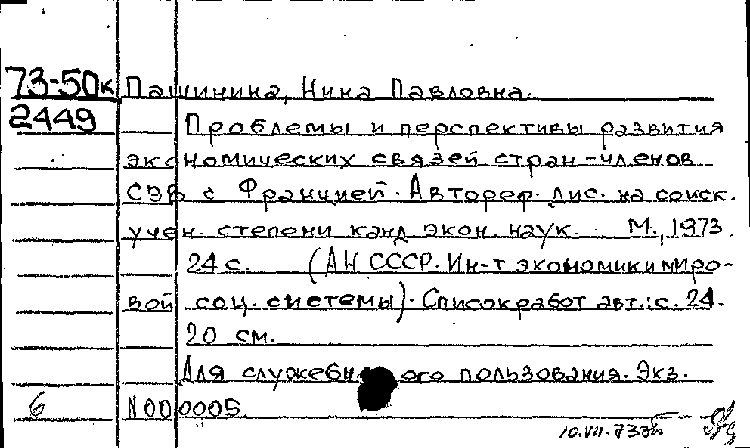 73-50к Пашинина, Нина Павловна.
2449 Проблемы и перспективы развития
экономических связей стран-членов
СЭВ с Францией. Автореф. дис. на соиск.
учен. степени канд. экон. наук. М., 1973.
24 с. (АН СССР. Ин-т экономики миро-
вой соц. системы). Список работ авт.: с. 24.
20 см.
Для служебного пользования. Экз.
6 N 000005.
10.VII.73